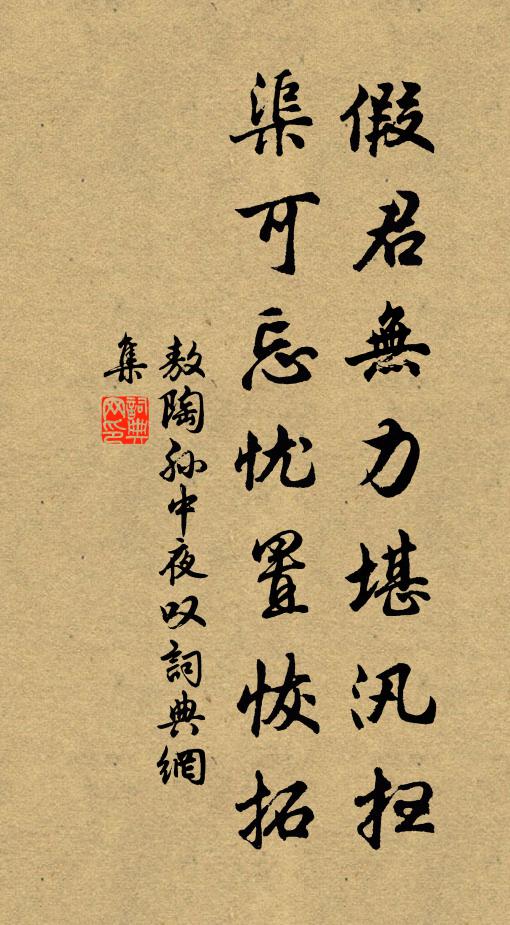 假君無力堪汛扫
渠可忘忧置恢拓
敖陶孙中夜叹詞典網
集
詞典网印